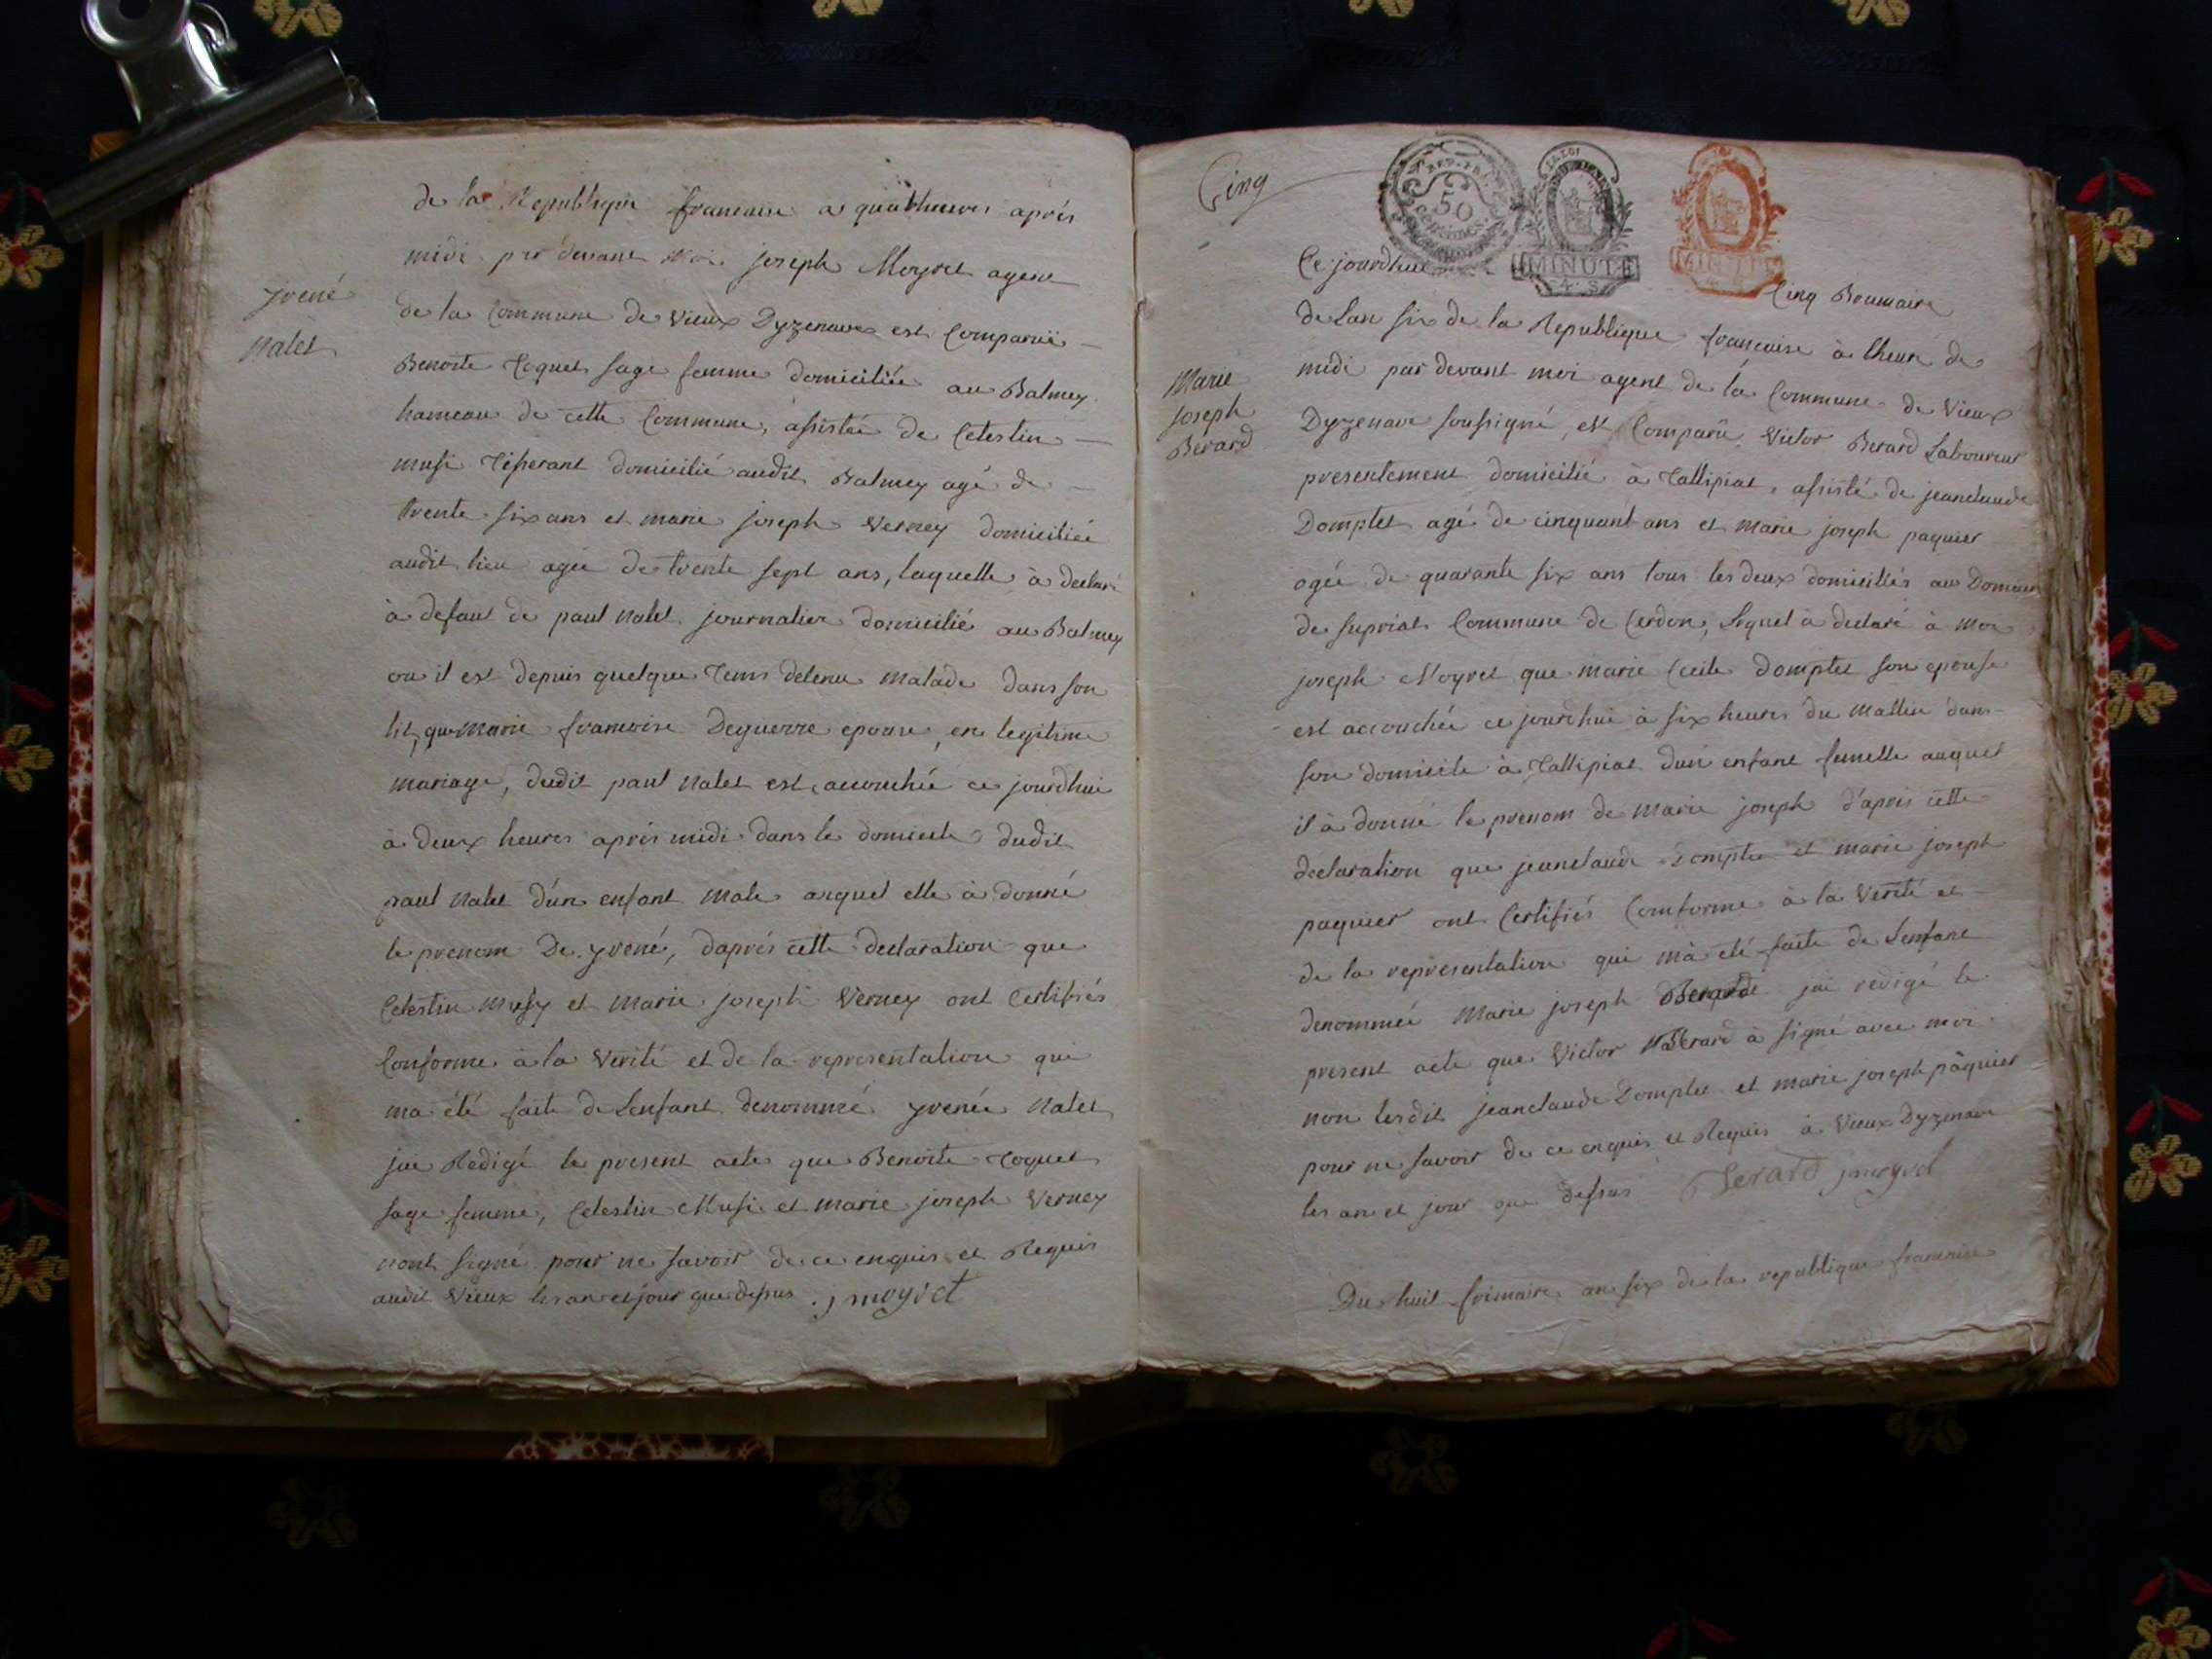 de la Republique francaise a quatheures aprés
midi par devant Moi joseph Moyret agent
yrené
Nalet
de la Commune de Vieux Dyzenave est Comparuë
Benoite Toquet sage femme domiciliée au Balmey
hameau de cette Commune, assistée de Celestin
musi Tisserant domicilié audit Balmey agé de
trente six ans et marie joseph Verney domiciliée
audit lieu agée de trente sept ans, laquelle à declaré
à defaut de paul Nalet journalier domicilié au Balmey
ou il est depuis quelque Tems detenu Malade dans son
lit, que Marie francoise Deguerre epouse, en legitime
mariage, dudit paul Nalet est accouchée ce jourdhui
à deux heures aprés midi dans le domicile dudit
paul Nalet d'un enfant Male auquel elle à donné
le prenom De yrené, daprés cette declaration que
Celestin Musy et Marie joseph Verney ont Certifiés
Conforme à la Verité et de la representation qui
ma été faite de Lenfant denommé yrenée Nalet
jai Redigé le present acte que Benoite Toquet
sage femme, Celestin Musi et marie joseph Verney
nont signé pour ne savoir de ce enquis et Requis
audit Vieux les an et jour que dessus. j moyret
Cinq
REP. FRA.
50
centimes
LA LOI
MINUTE
4. S.
Ce jourdhui
Cinq Brumaire
de Lan six de la Republique francaise à lheure de
midi par devant moi agent de la Commune de Vieux
Marie
joseph
Berard
Dyzenave soussigné est Comparu Victor Berard Laboureur
presentement domicilié à Tallipiat, assisté de jeanclaude
Domptet agé de cinquant ans et marie joseph paquier
agée de quarante six ans tous les deux domiciliés au Domaine
de supriat Commune de Cerdon, Lequel à declaré à Moi
joseph Moyret que marie Cecile Domptet son epouse
est accouchée ce jourdhui à six heures du Mattin dans
son domicile à Tallipiat dun enfant femelle auquel
il à donné le prenom de marie joseph d'aprés cette
declaration que jeanclaude Domptet et marie joseph
paquier ont Certifiés Comforme à la Verité et
de la representation qui mà eté faite de Lenfant
denommée Marie joseph Berard jai redigé le
present acte que Victor Berard à signé avec moi
non lesdit jeanclaude Domptet et marie joseph pâquier
pour ne savoir de ce enquis et Requis à Vieux Dyzenave
les an et jour que dessus Berard j moyret
Du huit frimaire an six de la republique francaise